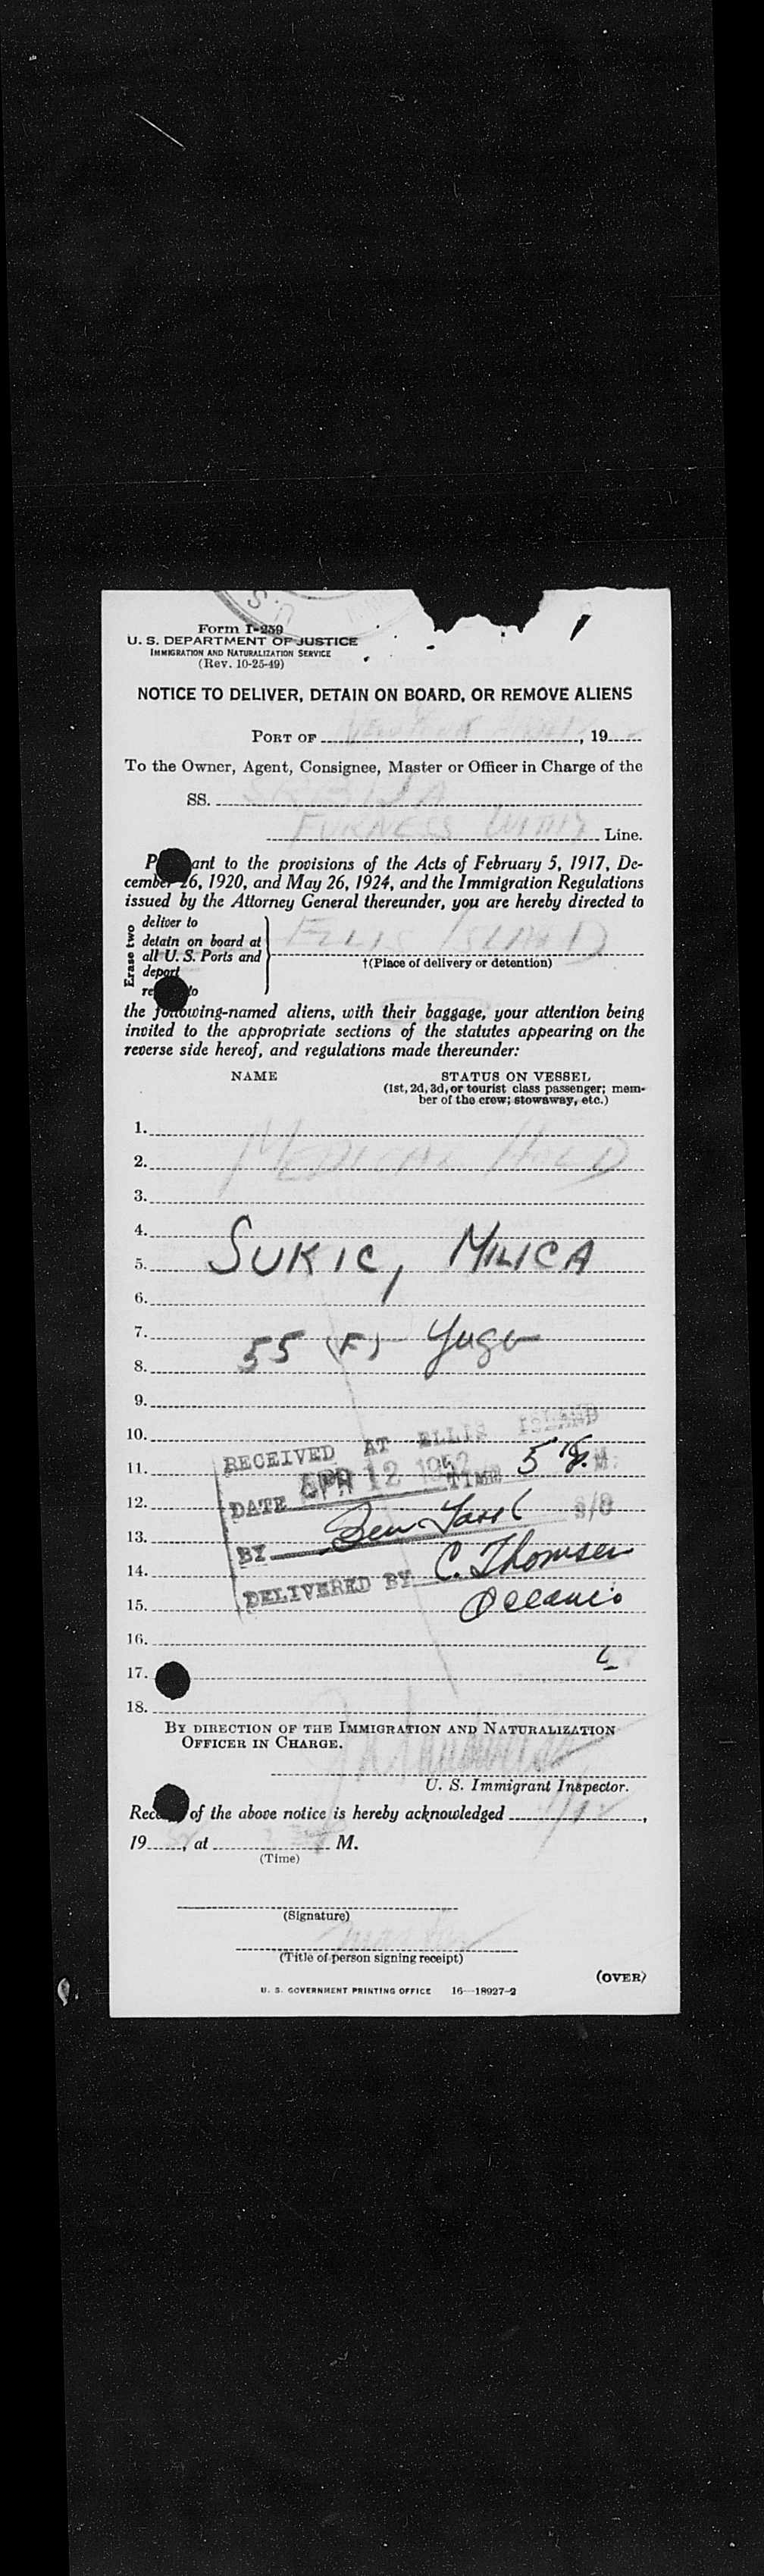 Form I-259
U. S. DEPARTMENT OF JUSTICE
IMMIGRATION AND NATURALIZATION SERVICE
(Rev. 10-25-49)
NOTICE TO DELIVER, DETAIN ON BOARD, OR REMOVE ALIENS
PORT OF , 19
To the Owner, Agent, Consignee, Master or Officer in Charge of the
SS. SRBIJA
FURNESS Line.
ant to the provisions of the Acts of February 5, 1917, De-
cember 26, 1920, and May 26, 1924, and the Immigration Regulations
issued by the Attorney General thereunder, you are hereby directed to
Erase two
deliver to
detain on board at
all U. S. Ports and
deport
to
ELLIS ISLAND
†(Place of delivery or detention)
the following-named aliens, with their baggage, your attention being
invited to the appropriate sections of the statutes appearing on the
reverse side hereof, and regulations made thereunder:
NAME STATUS ON VESSEL
(1st, 2d, 3d, or tourist class passenger; mem-
ber of the crew; stowaway, etc.)
1.
2. MEDICAL HOLD
3.
4.
5. SUKIC, MILICA
6.
7. 55 (F) Yugo
8.
9.
10.
RECEIVED AT ELLIS ISLAND
11.
DATE APR 12 1952 TIME 5
12.
13.
BY Ben
14.
DELIVERED BY C. Thomsen
15. Oceanic
16.
17.
18.
BY DIRECTION OF THE IMMIGRATION AND NATURALIZATION
OFFICER IN CHARGE.
U. S. Immigrant Inspector.
of the above notice is hereby acknowledged ,
19 , at M.
(Time)
(Signature)
(Title of person signing receipt)
(OVER)
U. S. GOVERNMENT PRINTING OFFICE 16—18927-2